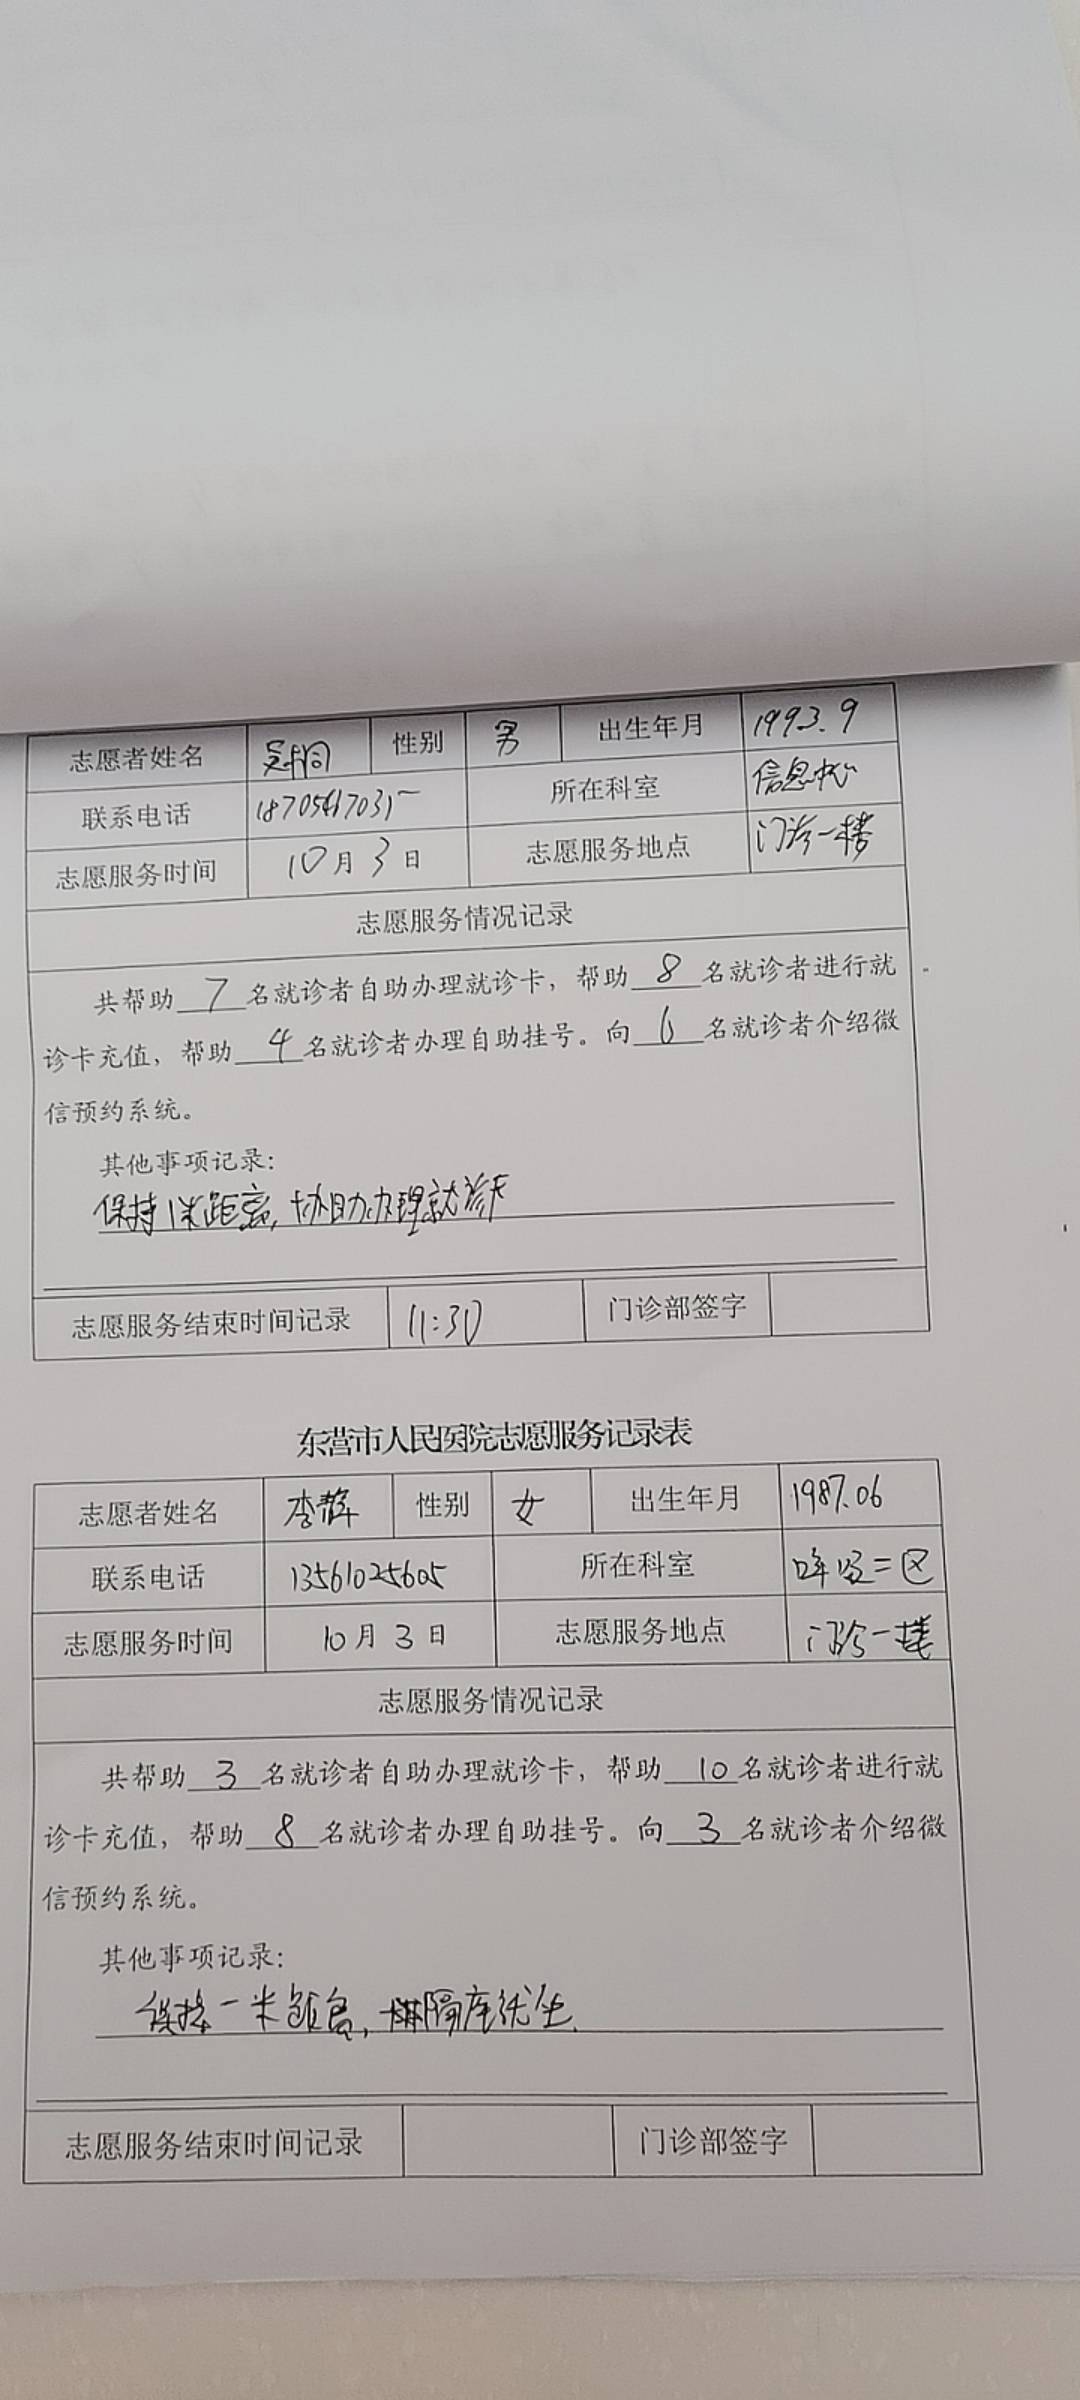 志愿者姓名 性别 男 出生年月 1993.9
联系电话 所在科室 信息中心
志愿服务时间 10月3日 志愿服务地点 门诊一楼
志愿服务情况记录
共帮助7名就诊者自助办理就诊卡，帮助8名就诊者进行就
诊卡充值，帮助4名就诊者办理自助挂号。向6名就诊者介绍微
信预约系统。
其他事项记录：
保持1米距离，协助办理就诊卡
志愿服务结束时间记录 11:30 门诊部签字
东营市人民医院志愿服务记录表
志愿者姓名 李 性别 女 出生年月 1987.06
联系电话 13561025605 所在科室 呼吸二区
志愿服务时间 10月3日 志愿服务地点 门诊一楼
志愿服务情况记录
共帮助3名就诊者自助办理就诊卡，帮助10名就诊者进行就
诊卡充值，帮助8名就诊者办理自助挂号。向3名就诊者介绍微
信预约系统。
其他事项记录：
一米距离，隔座就坐.
志愿服务结束时间记录 门诊部签字